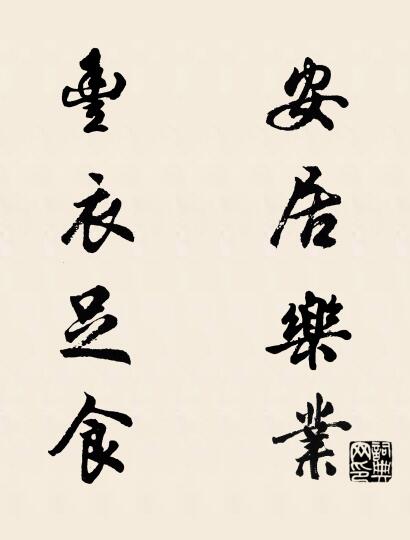 安居樂業
豐衣足食
詞典網印